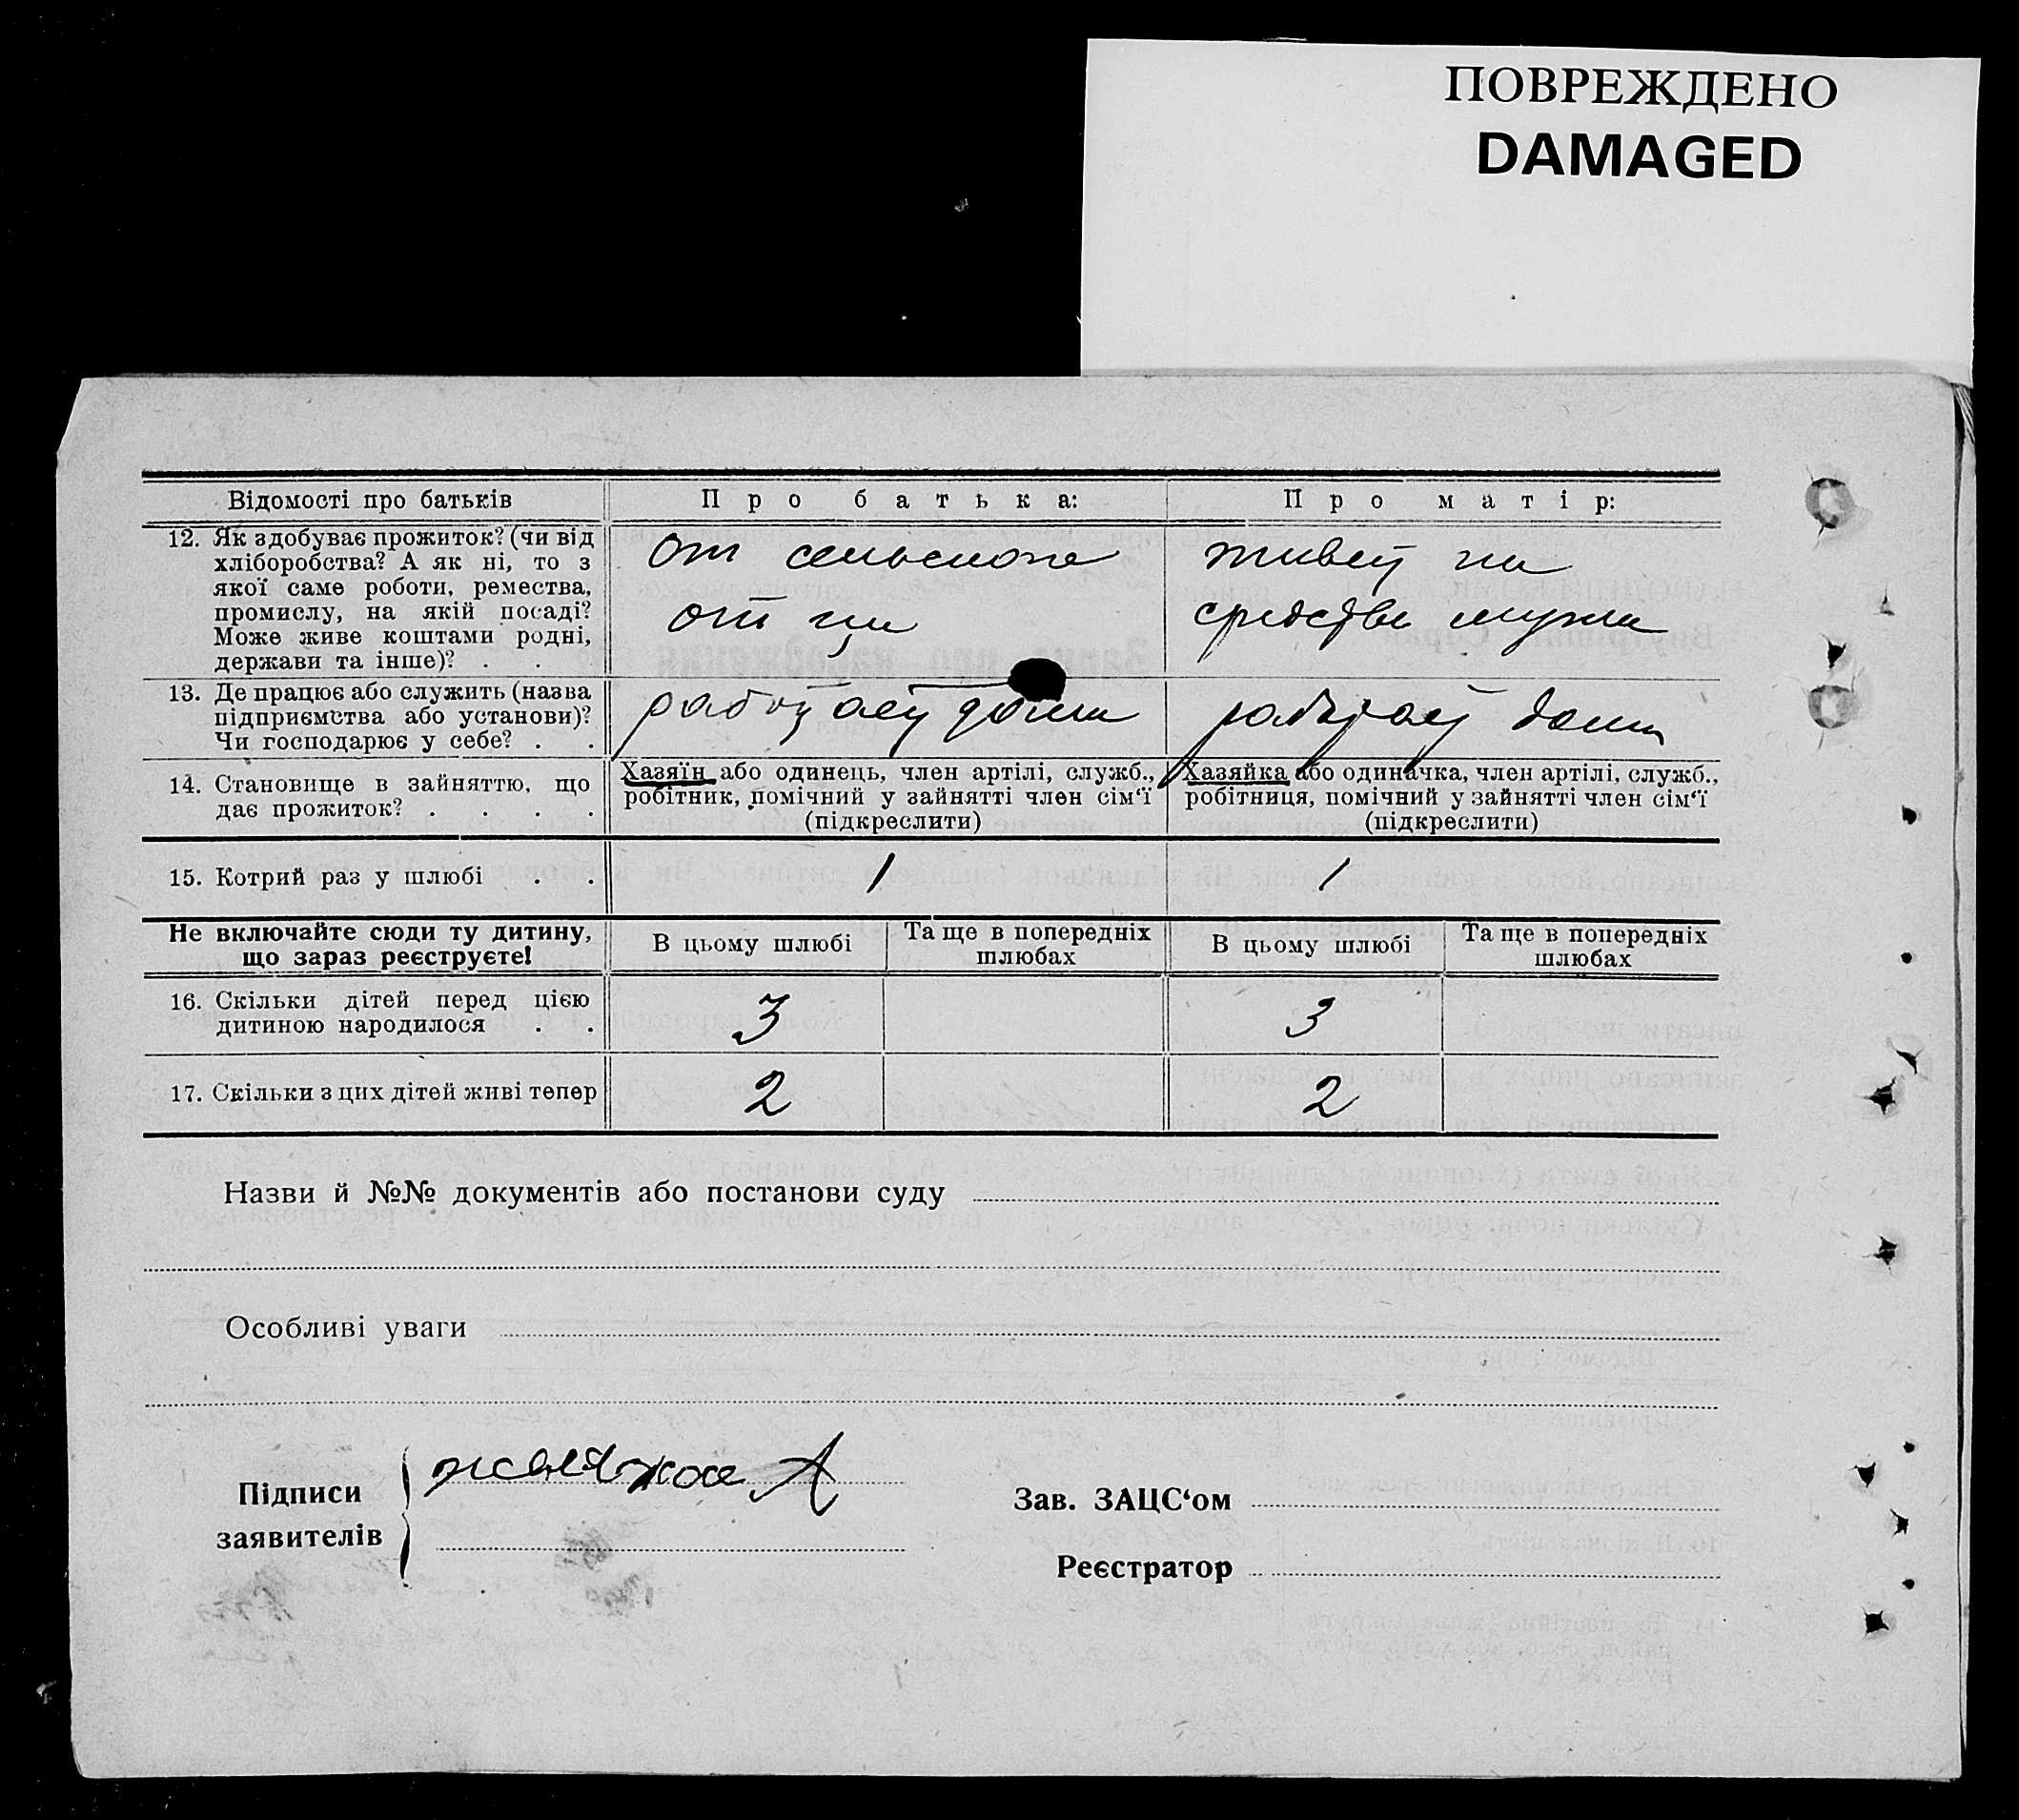 ПОВРЕЖДЕНО
DAMAGED
Відомості про батьків
Про батька:
Про матір:
12. Як здобуває прожиток? (чи від
хліборобства? А як ні, то з
якої саме роботи, ремества,
промислу, на якій посаді?
Може живе коштами родні,
держави та інше)? . .
от
от
живет на
средства мужа
13. Де працює або служить (назва
підприємства або установи)?
Чи господарює у себе? . .
работает дома
работает дома
14. Становище в зайняттю, що
дає прожиток? . . . .
Хазяїн або одинець, член артілі, служб.,
робітник, помічний у зайнятті член сім‘ї
(підкреслити)
Хазяйка або одиначка, член артілі, служб.,
робітниця, помічний у зайнятті член сім‘ї
(підкреслити)
15. Котрий раз у шлюбі . .
1
1
Не включайте сюди ту дитину,
що зараз реєструєте!
В цьому шлюбі
Та ще в попередніх
шлюбах
В цьому шлюбі
Та ще в попередніх
шлюбах
16. Скільки дітей перед цією
дитиною народилося . .
3
3
17. Скільки з цих дітей живі тепер
2
2
Назви й №№ документів або постанови суду
Особливі уваги
Підписи
заявителів
А
Зав. ЗАЦС‘ом
Реєстратор